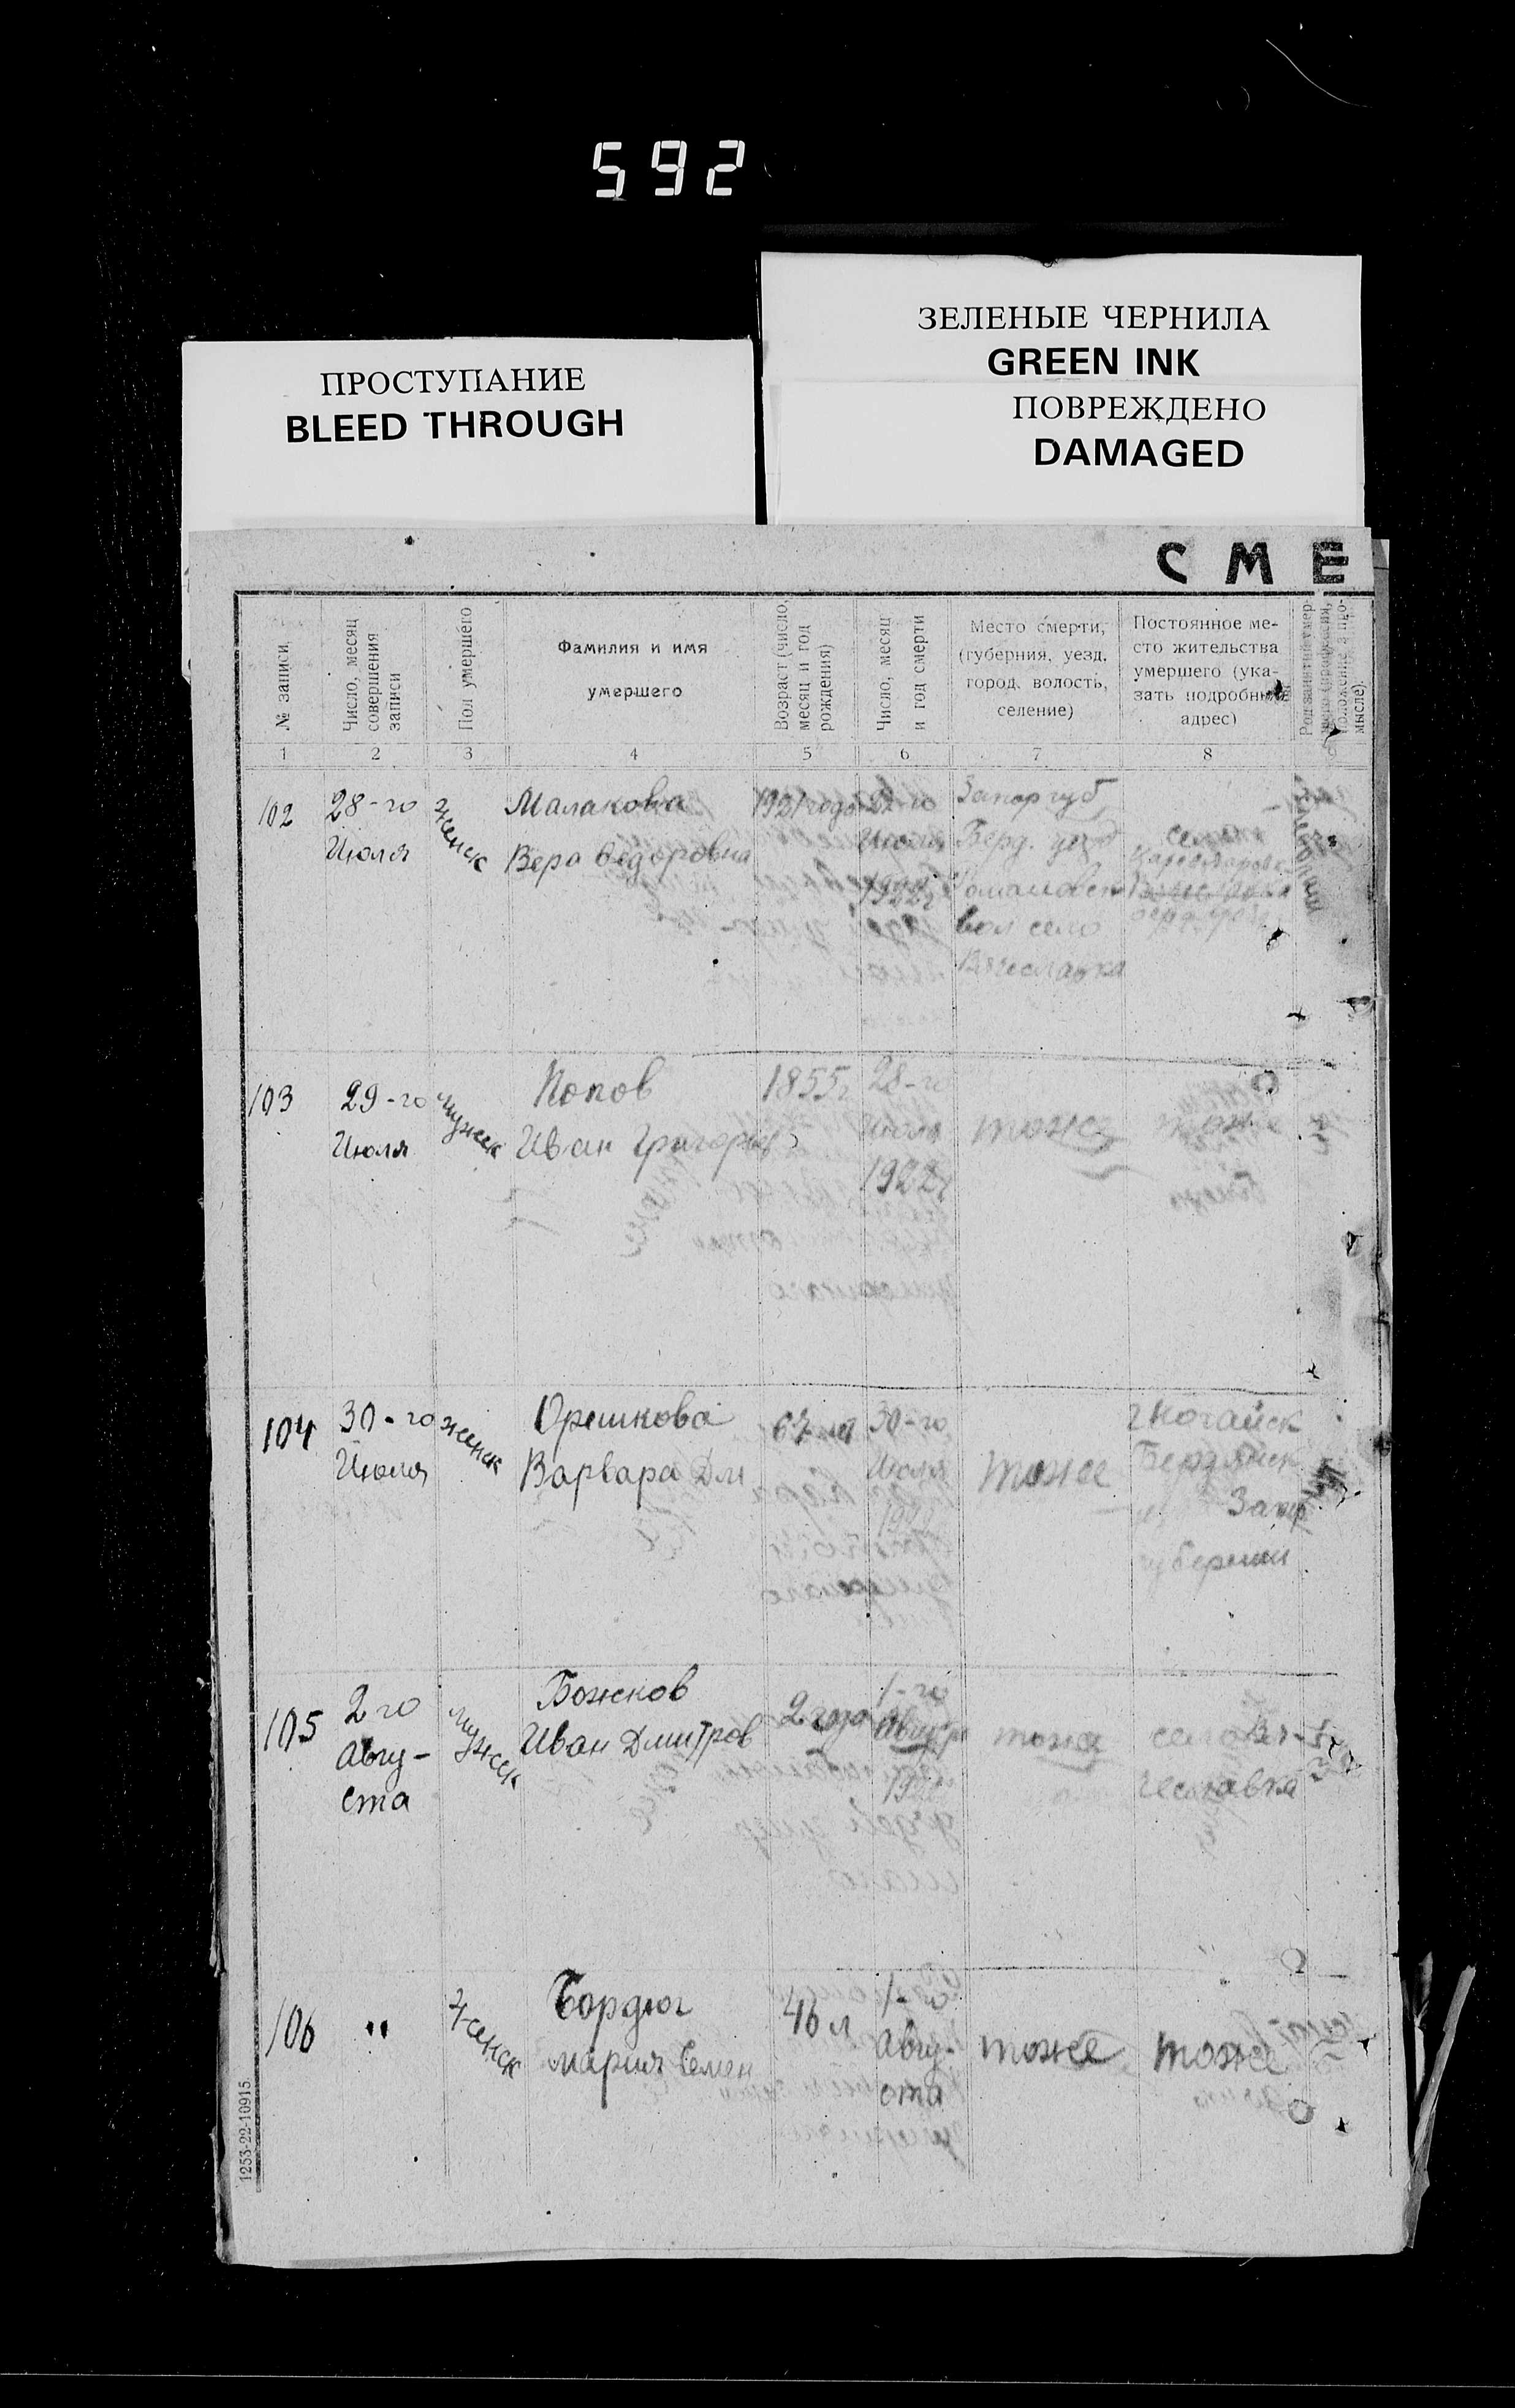 592
ЗЕЛЕНЫЕ ЧЕРНИЛА
GREEN INK
ПРОСТУПАНИЕ
BLEED THROUGH
ПОВРЕЖДЕНО
DAMAGED
СМЕ
№ записи
Число, месяц
совершения
записи
Пол умершего
Фамилия и имя
умершего
Возраст (число,
месяц и год
рождения)
Число, месяц
и год смерти
Место смерти,
(губерния, уезд,
город, волость,
селение)
Постоянное ме-
сто жительства
умершего (ука-
зать подробный
адрес)
мысле).
1 2 3 4 5 6 7 8
102
28-го
Июля
женск
Малакова
Вера Федоровна
1921 года
Июля
1922г
Запор губ
Берд. уезд
вол село
Вячеславка
село
103
29-го
Июля
мужск
Попов
Иван Григорьев
1855г
28-го
Июля
1922г
тоже
тоже
104
30-го
Июля
женск
Орешкова
Варвара Дм
67 лет
30-го
Июля
тоже
г Ногайск
Бердянск
Запор
губернии
105
2 го
Авгу-
ста
мужск
Божков
Иван Дмитров
2 года
1-го
тоже
село Вя-
чеславка
106
"
женск
Бордюг
Мария Семен
46 л
1-го
Авгу-
ста
тоже
тоже
1253-22-10915.